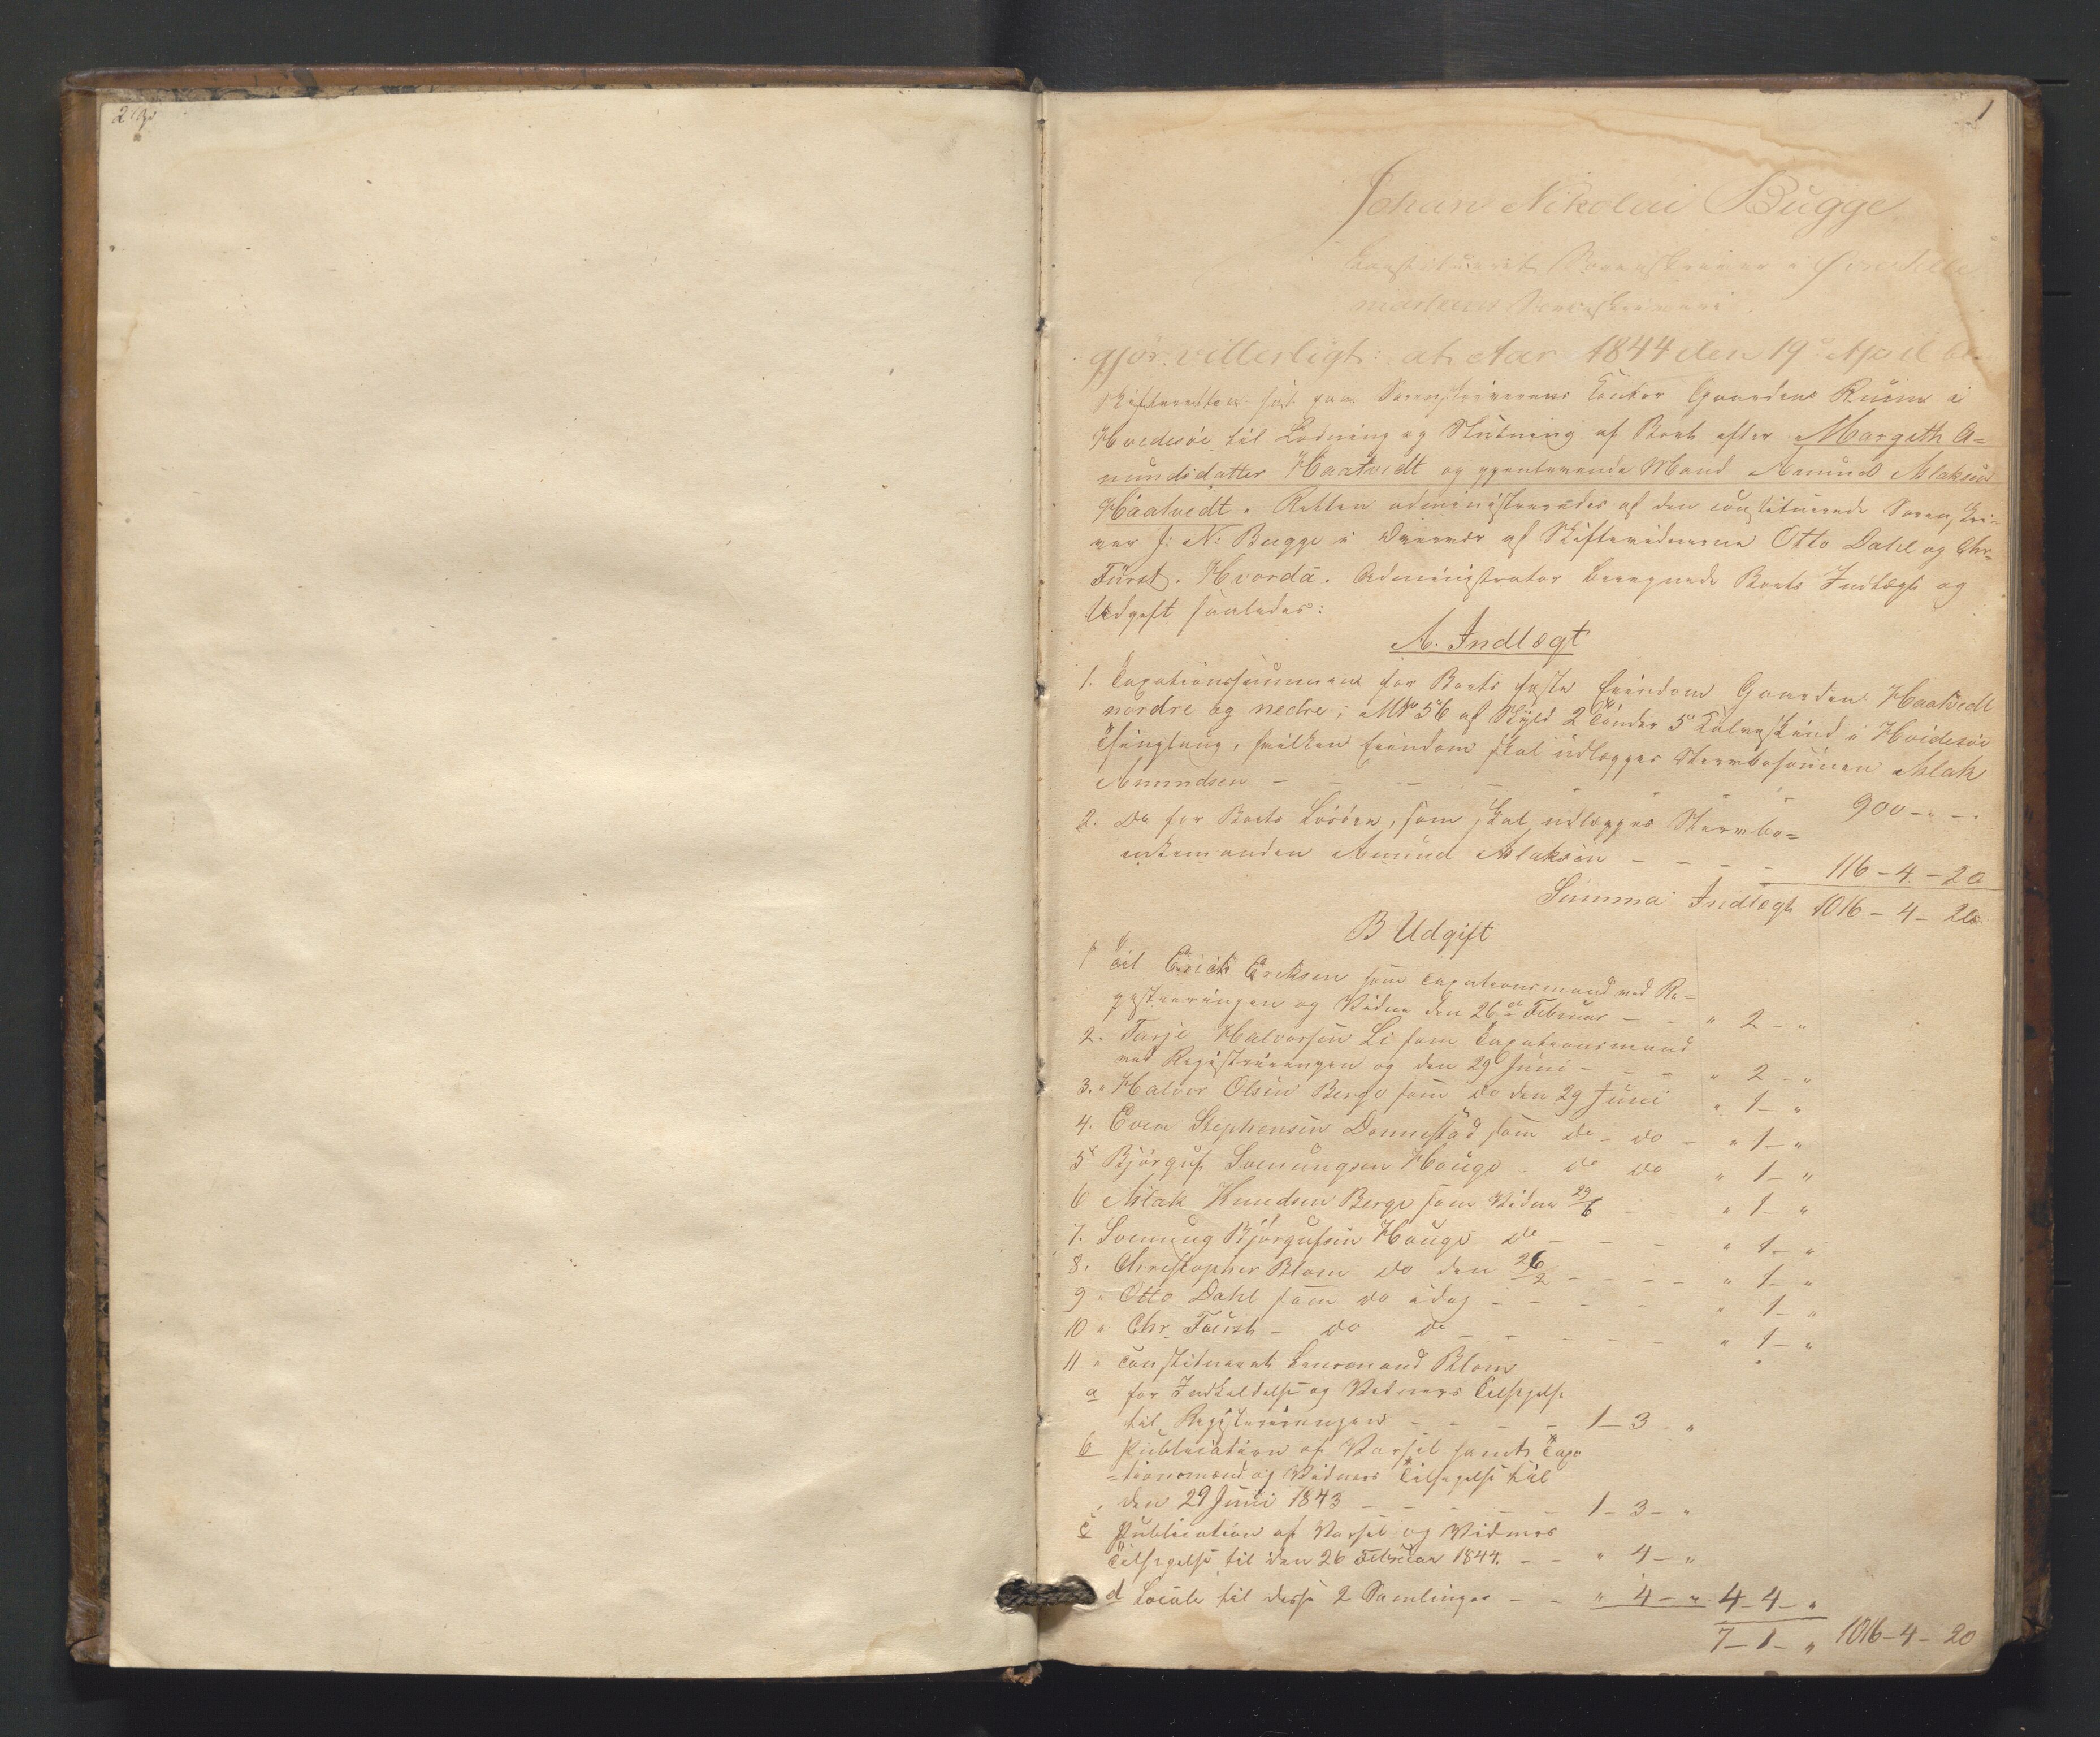 2
1
Johan Nikolai Bugge
Constitueret Sorenskriver i Øvre Telle
markens Sorenskriveri
gjør vitterligt: at Aar 1844 den 19de April be-
Skifteretten sat paa Sorenskriverens Contor Gaarden Ruin i
Hvidesøe til Lodning og Slutning af Boet efter Margith A=
mundsdatter Haatvedt og gjenlevende Mand Amund Aslaksen
Haatvedt. Retten administreredes af den constituerede Sorenskri-
ver J: N: Bugge i Overvær af Skiftevidnerne Otto Dahl og Chr.
Fürst. Hvorda. Administrator beregnede Boets Indtægt og
Udgift saaledes:
A. Indtægt
1. Taxationssummen for Boets faste Eiendom Gaarden Haatvedt
nordre og nedre, MNo 56 af Skyld 2 Tønder 5 Kalveskind i Hvidesøe
Thinglaug, hvilken Eiendom skal udlægges Stervbosønnen Aslak
Amundsen - - - - - - - 900 - " - "
2. Do for Boets Løsøre, som skal udlægges Stervbo=
enkemanden Amund Aslaksen - - - - 116 - 4 - 20
Summa Indtægt 1016 - 4 - 20
B Udgift
1 Til Erich Eriksen som Taxationsmand ved Re=
gistreringen og Vidne den 26de Februar - - " 2 - "
2. Tarje Halvorsen Li som Taxationsmand
ved Registreringen og den 29 Juni - - - " 2 - "
3. " Halvor Olsen Berge som Do den 29 Juni " 1 - "
4. Even Stephensen Donnestad som do - do - " 1 - "
5 Bjørguf Svenungsen Houge - do do " 1 - "
6 Aslak Knudsen Berge som Vidne 29/6 - - " 1 - "
7. Svenung Bjørgufsen Houge do - - - " 1 - "
8. Christopher Blom do den 26/2 - - - - " 1 - "
9 " Otto Dahl som do idag - - - - " 1 - "
10 " Chr. Fürst - do do - - - - - " 1 - "
11 " Constitueret Lensmand Blom
a for Indkaldelse og Vidners Tilsigelse
til Registreringen - - - - - 1 - 3 - "
b Publication af Varsel samt Taxa
=tionsmænd og Vidners Tilsigelse til
den 29 Juni 1843 - - - - - 1 - 3 - "
c Publication af Varsel og Vidners
Tilsigelse til den 26 Februar 1844. - - " 4 - "
d Locale til disse 2 Samlinger - - " 4 - " 4 - 4 - "
7 - 1 - " 1016 - 4 - 20